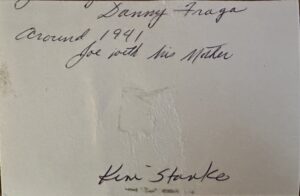 Danny Fraga
Around 1941
Joe with his Mother
Kim Stanke